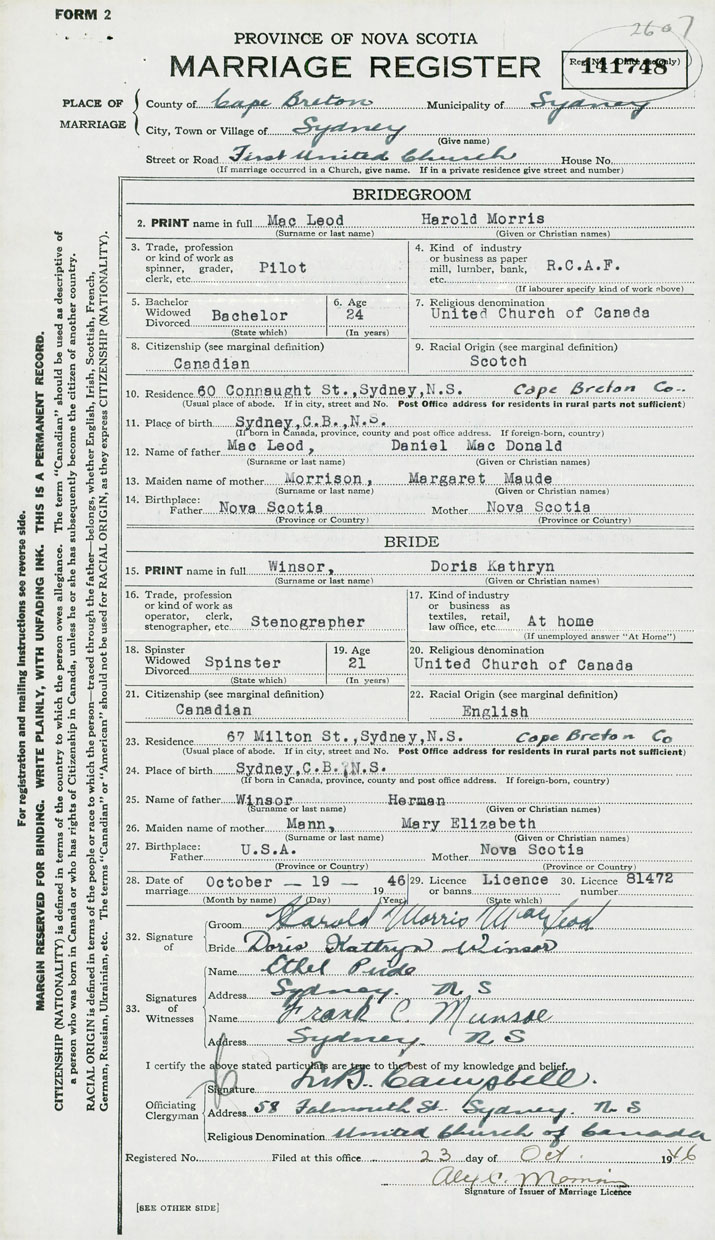 FORM 2
2607
PROVINCE OF NOVA SCOTIA
MARRIAGE REGISTER
Reg. No. (Office use only)
141748
PLACE OF MARRIAGE
County of Cape Breton Municipality of Sydney
City, Town or Village of Sydney
(Give name)
Street or Road First United Church House No.
(If marriage occurred in a Church, give name. If in a private residence give street and number)
BRIDEGROOM
2. PRINT name in full Mac Leod Harold Morris
(Surname or last name) (Given or Christian names)
3. Trade, profession or kind of work as spinner, grader, clerk, etc. Pilot
4. Kind of industry or business as paper mill, lumber, bank, etc. R.C.A.F.
(If labourer specify kind of work above)
5. Bachelor Widowed Divorced Bachelor
(State which)
6. Age 24
(In years)
7. Religious denomination
United Church of Canada
8. Citizenship (see marginal definition)
Canadian
9. Racial Origin (see marginal definition)
Scotch
10. Residence 60 Connaught St., Sydney, N.S. Cape Breton Co..
(Usual place of abode. If in city, street and No. Post Office address for residents in rural parts not sufficient)
11. Place of birth Sydney, C.B., N.S.
(If born in Canada, province, county and post office address. If foreign-born, country)
12. Name of father Mac Leod, Daniel Mac Donald
(Surname or last name) (Given or Christian names)
13. Maiden name of mother Morrison, Margaret Maude
(Surname or last name) (Given or Christian names)
14. Birthplace: Father Nova Scotia Mother Nova Scotia
(Province or Country) (Province or Country)
BRIDE
15. PRINT name in full Winsor, Doris Kathryn
(Surname or last name) (Given or Christian names)
16. Trade, profession or kind of work as operator, clerk, stenographer, etc. Stenographer
17. Kind of industry or business as textiles, retail, law office, etc. At home
(If unemployed answer "At Home")
18. Spinster Widowed Divorced Spinster
(State which)
19. Age 21
(In years)
20. Religious denomination
United Church of Canada
21. Citizenship (see marginal definition)
Canadian
22. Racial Origin (see marginal definition)
English
23. Residence 67 Milton St., Sydney, N.S. Cape Breton Co
(Usual place of abode. If in city, street and No. Post Office address for residents in rural parts not sufficient)
24. Place of birth Sydney, C.B., N.S.
(If born in Canada, province, county and post office address. If foreign-born, country)
25. Name of father Winsor Herman
(Surname or last name) (Given or Christian names)
26. Maiden name of mother Mann, Mary Elizabeth
(Surname or last name) (Given or Christian names)
27. Birthplace: Father U.S.A. Mother Nova Scotia
(Province or Country) (Province or Country)
28. Date of marriage October — 19 — 1946
(Month by name) (Day) (Year)
29. Licence or banns Licence
(State which)
30. Licence number 81472
32. Signature of
Groom Harold Morris MacLeod
Bride Doris Kathryn Winsor
33. Signatures of Witnesses
Name Ethel Pude
Address Sydney. N S
Name Frank C. Munroe
Address Sydney. N S
I certify the above stated particulars are true to the best of my knowledge and belief.
Officiating Clergyman
Signature Campbell.
Address 58 Falmouth St. Sydney. N S
Religious Denomination United Church of Canada
Registered No. Filed at this office 23 day of Oct. 1946
Alex C.
Signature of Issuer of Marriage Licence
[SEE OTHER SIDE]
For registration and mailing instructions see reverse side.
MARGIN RESERVED FOR BINDING. WRITE PLAINLY, WITH UNFADING INK. THIS IS A PERMANENT RECORD.
CITIZENSHIP (NATIONALITY) is defined in terms of the country to which the person owes allegiance. The term "Canadian" should be used as descriptive of
a person who was born in Canada or who has rights of Citizenship in Canada, unless he or she has subsequently become the citizen of another country.
RACIAL ORIGIN is defined in terms of the people or race to which the person—traced through the father—belongs, whether English, Irish, Scottish, French,
German, Russian, Ukrainian, etc. The terms "Canadian" or "American" should not be used for RACIAL ORIGIN, as they express CITIZENSHIP (NATIONALITY).